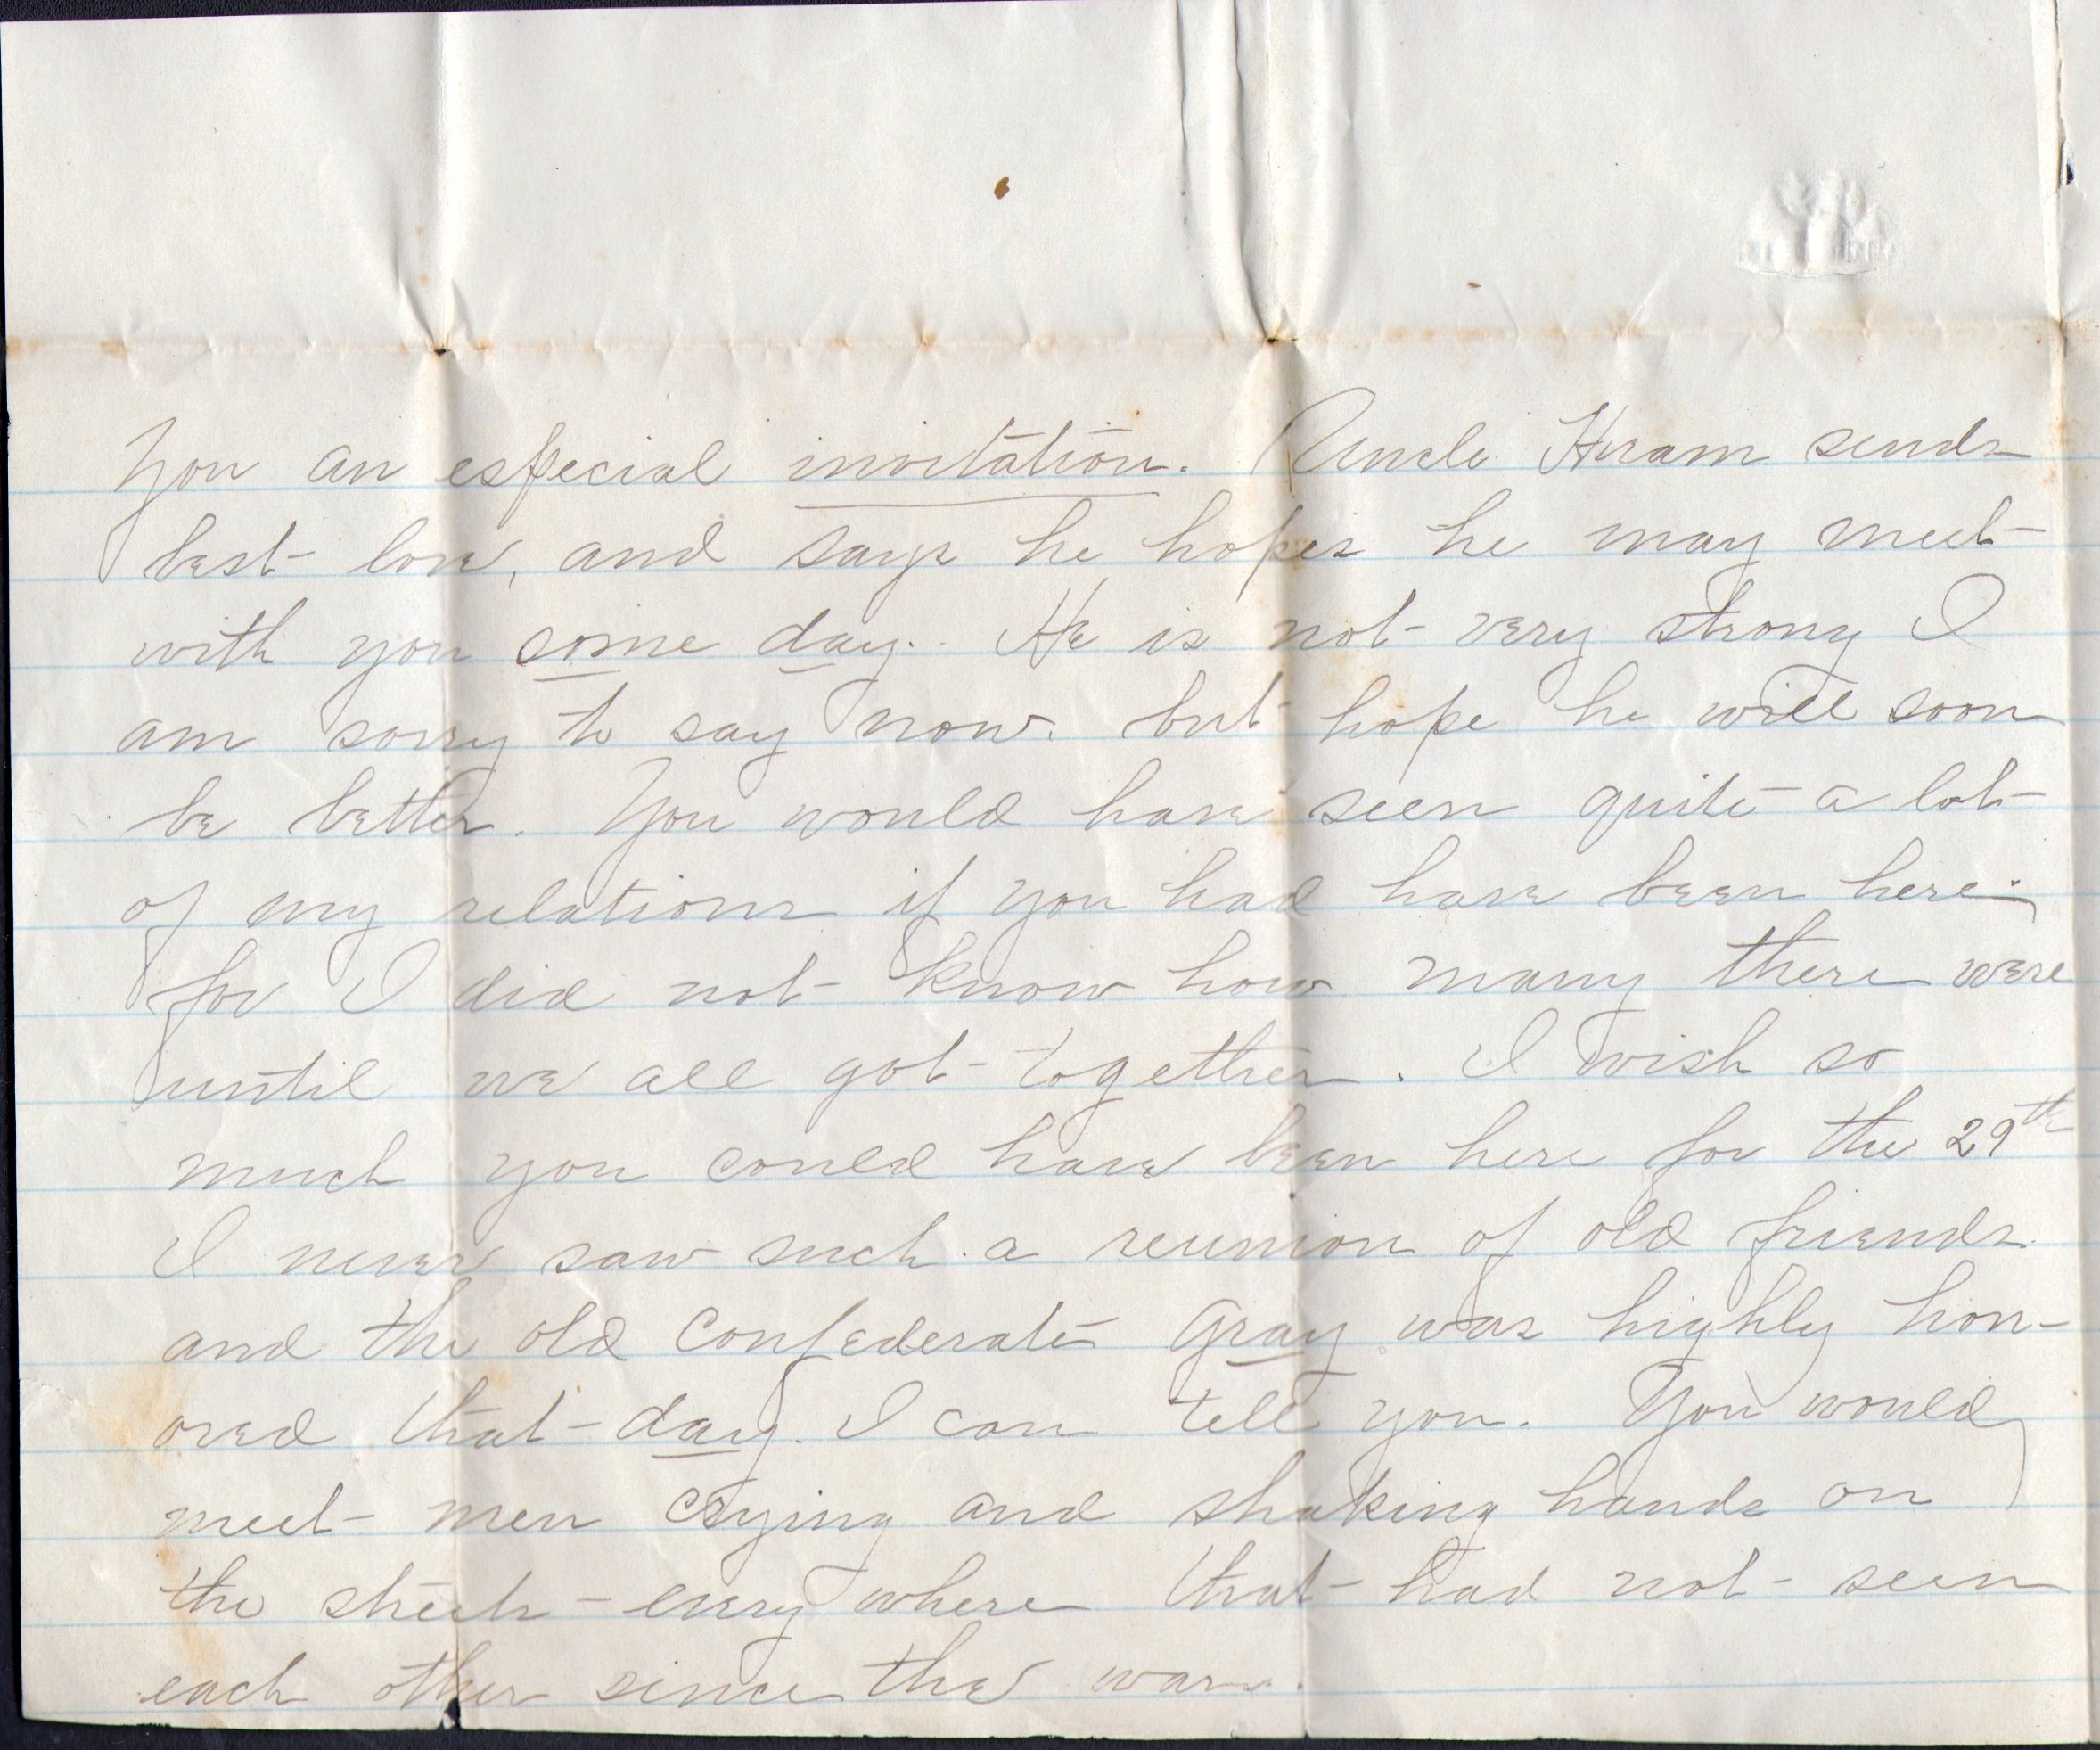 You an especial invitation. Uncle Hiram sends
best love, and says he hopes he may meet
with you some day. He is not very strong I
am sorry to say now. but hope he will soon
be better. You would have seen quite a lot
of my relations if you had have been here,
for I did not know how many there were
until we all got together. I wish so
much you could have been here for the 29th
I never saw such a reunion of old friends.
and the old Confederate Gray was highly hon-
ored that day. I can tell you. You would
meet men crying and shaking hands on
the streets every where that had not seen
each other since the war.